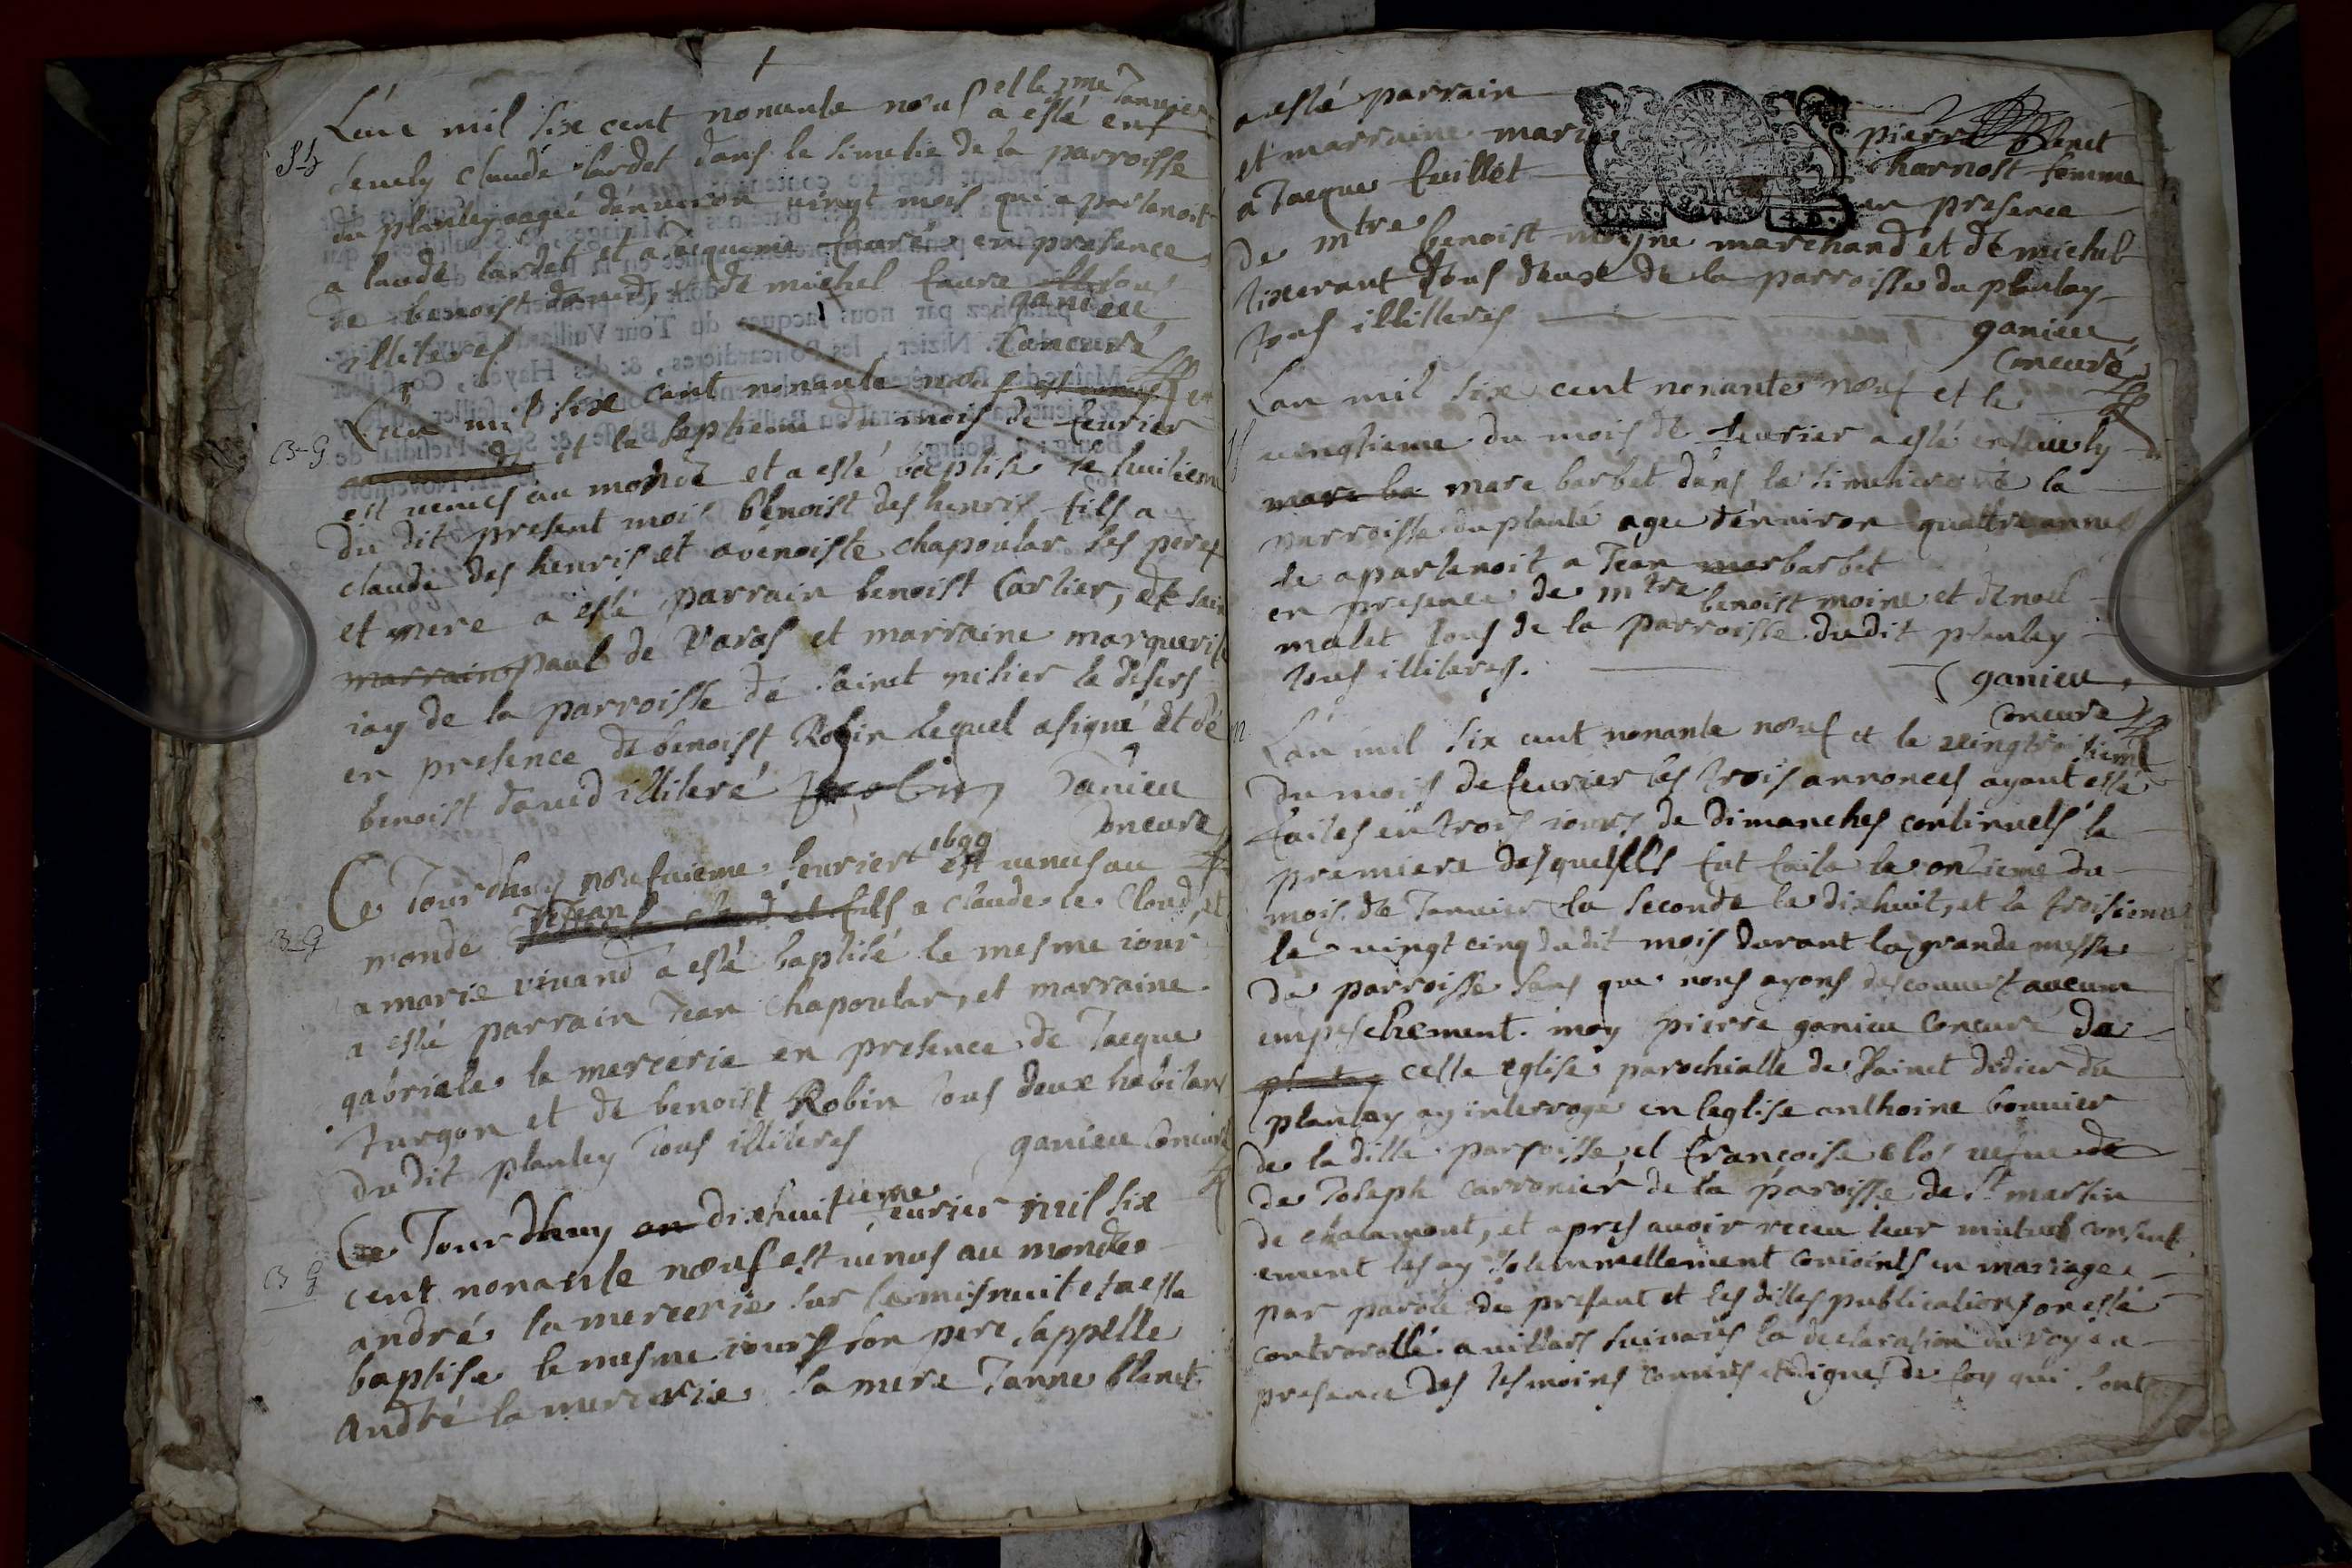 L'an mil six cent nonante nouf et le 3me Janvier
a esté en
Sb
sevely claude lardet dans le simetie de la parroisse
du planley aagé d'environ vingt mois qui apartenoit
a laude lardet et a faure en présence
de benoist david, et de michel faure
illeteres
ganieu
Concuré
L'an mil six cent nonante nouf
B-G
et le septieme du mois de feurier
est venus au monde et a esté baptise le huitieme
du dit present mois benoist des henris fils a
claude des henris et a benoiste chapoular ses peres
et mere a esté parrain benoist Cartier, de sain
marraine paul de Varas et marraine marguerite
iay de la parroisse de sainct nisier le desers
en presence de benoist Robin lequel a signé et de
benoist david illiteré Robin Ganieu
Concure
Ce Jourdhuy noufuieme feurier 1699 est venus au
B-G
monde Jean fils a claude le Cloud, et
a marie vivand a esté baptisé le mesme iour
a esté parrain Jean Chapoular, et marraine
gabriele la mercerie en presence de Jacque
Jurgon et de benoist Robin tous deux habitans
du dit planley tous illiteres
ganieu Concuré
Ce Jourdhuy an dixhuitieme feurier mil six
B G
cent nonante nœuf est venus au monde
andré la mercerie sur le misnuit et a esté
baptise le mesme iours son pere sappelle
andré la mercerie sa mere Janne blenet
a esté parrain pierre blenet
et marraine marie charnost femme
a Jacque fuillet en presence
de mtre benoist moyne marchand et de michel
tixerant tous deux de la parroisse du planlay
tous illilleres
ganieu
Concuré
Lan mil six cent nonante nœuf et le
vingtieme du mois de feurier a esté ensevely
marc ba marc barbet dans le simetiere de la
parroisse du planlé agee d'environ quattre annes
le apartenoit a Jean mar barbet
en presence de mtre benoist moine et de noel
malet tous de la parroisse dudit planley
tous illiteres.
ganieu
Concure
m
L'an mil six cent nonante nœuf et le vingtroisieme
du mois de feurier les trois annonces ayant esté
faites en trois iours de dimanches continuels la
premiere desquelles fut faite le onzieme du
mois de Janvier la seconde le dixhuit, et la troisieme
le vingt cinq dudit mois durant la grande messe
de parroisse sans que nous ayons descouvert aucum
empeschement. moy pierre ganieu Concuré de
planlay celle eglise parochialle de sainct didier du
planlay ay interrogé en leglise anthoine bouvier
de la ditte parroisse, et Françoise clos vefue de
de Joseph carronier de la paroisse de st martin
de chalamont, et apres auoir receu leur mutuel consent
ement les ay solemnellement conioints en mariage
par parole de present et les dittes publications on esté
controrollé a villars suivans la declaration du roy e a
presence des tesmoins connus et dignes de foy qui sont